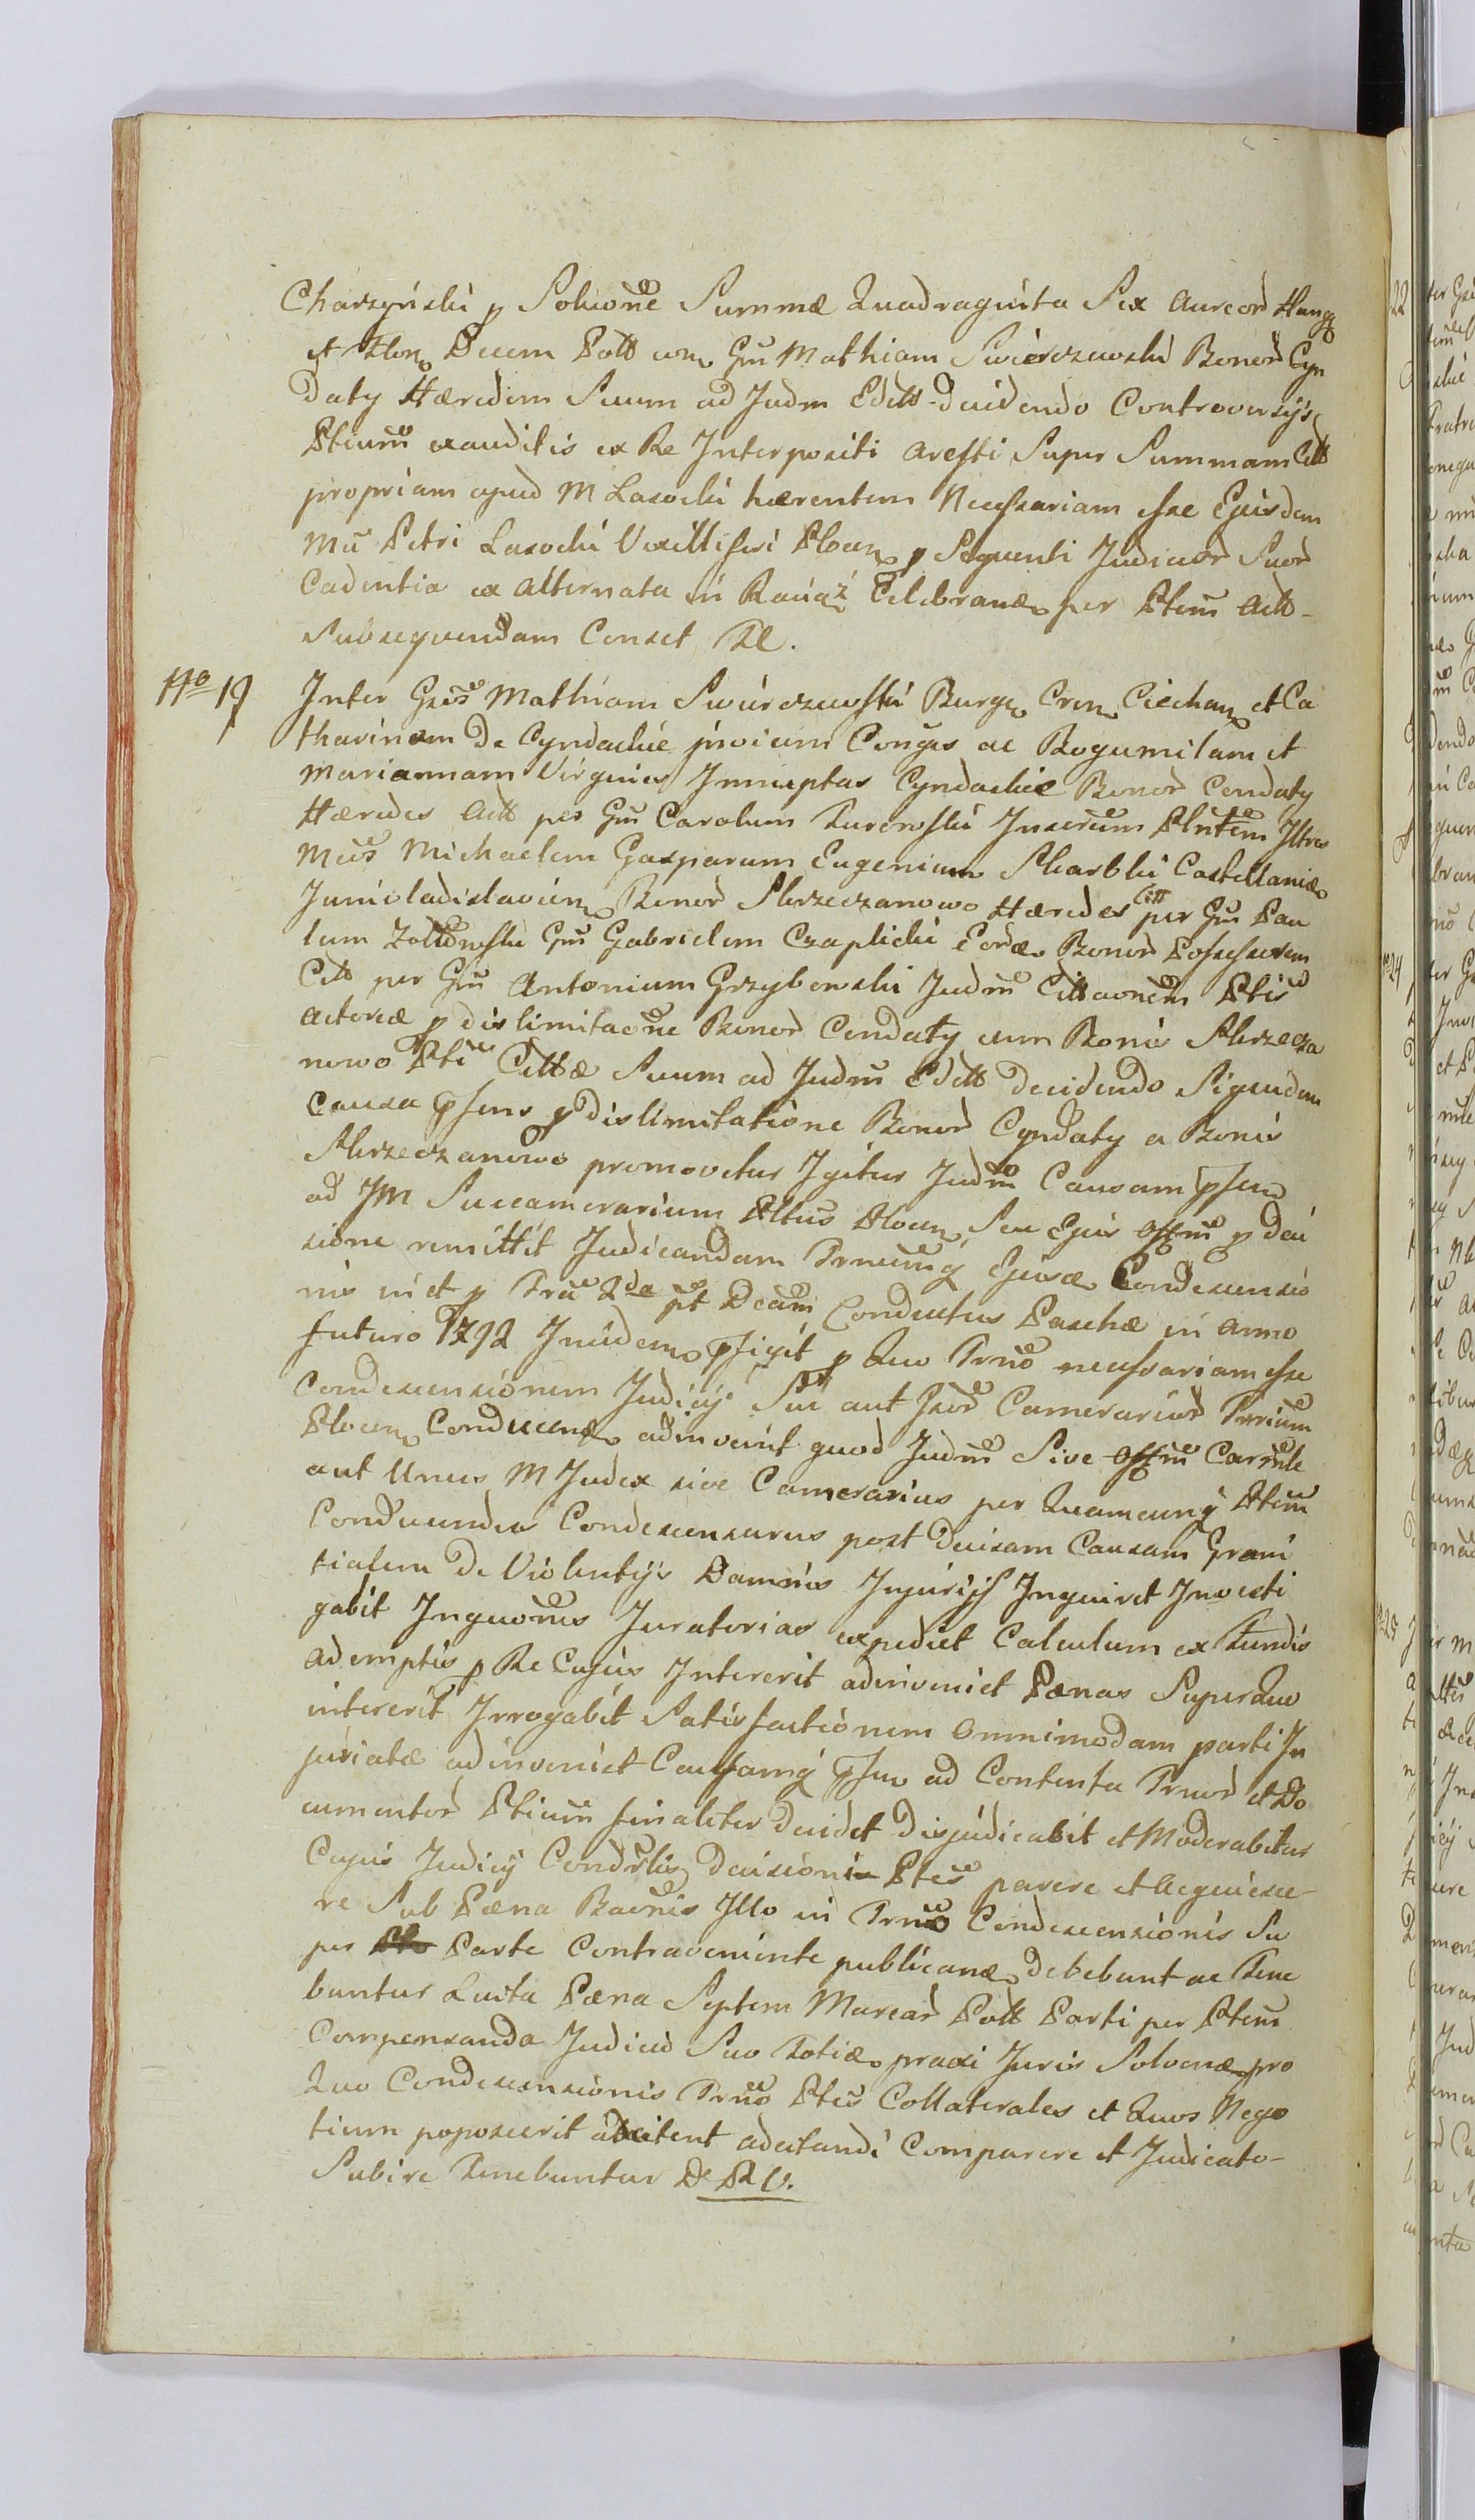 Charzyński p Soluone Summæ Quadraginta Sex Aureor Hung
et Flor Decem Poll cum Gm Mathiam Swierczewski Bonor Cyn
daty Hæredem Suum ad Judm Edett decidendo Controversijs
Ptium exauditis ex Re Interpositi Aresti Super Summam Citt
propriam apud M Lasocki hærentem Necessariam esse Ejusdem
Mci Petri Lasocki Vexilliferi Plocen p Sequenti Judicior Suor
Cadentia ex Alternata in Raciąż Celebranæ per Ptem Act-
Subsequendam Censet Sł.
Nro 19 Inter Gsos Mathiam Swierczewski Burge Cren Ciechan et Ca
tharinam De Cyndackie invicem Conges ac Bogumilam et
Mariannam Virgines Innuptas Cyndackie Bonor Cendaty
Hæredes Act per Gm Carolum Turowski Juserum Plntem Iltres
Mcos Michaelem Gasparum Eugenium Skarbki Castellanid
Juniwladislavien Bonor Skrzeczanowo Hæredes Citt per Gm Pau
lum Zołtowski Gm Gabrielem Czaplicki Eord Bonor Possessorem
Citt per Gm Antonium Grzybowski Judm Cittaonem Ptis
Actoreæ p dislimitacone Bonor Cendaty cum Bonis Skrzecza
nowo Pti Cittæ Suum ad Judm Edett decidendo Siquidem
Causa psens p dislimitatione Bonor Cyndaty a Bonis
Skrzeczanowo promovetur Igitur Judm Causam psen
ad JM Succamerarium Pltus Plocen Seu Ejus Offm p deci
sione remittit Judicandam Trmumq Ejusd Condescensio
nis in et p Tria 2da pt Dcam Conductus Paschæ in Anno
futuro 1792 Inibidem pfigit p Quo Trmo necessariam esse
Condescensionem Judicij Sui aut Suor Camerarior Trrium
Plocen Conducend adinvenit quod Judm Sive Offm Carmle
aut Unus M Judex sive Camerarius per Quamcunq Ptem
Conducendus Condescensurus post decisam Causam Grani
tialem De Violentijs Damnis Injurijs Inquiret Investi
gabit Inquones Juratorias expediet Calculum ex Fundis
Ademptis p Re Cujus Intererit adinveniet Pænas Super Quo
intererit Irrogabit Satisfactionem Omnimodam parti In
juriatæ adinveniet Causamq psen ad Contenta Trmor et Do
cumentor Ptium finaliter decidet Disjudicabit et Moderabitur
Cujus Judicij Condrlis decisioni Ptes parere et Acquiesce-
re Sub Pæna Bacnis Illo in Trmo Condescensionis Su
per Parte Contraveniente publicanæ debebunt ac Tene
buntur Luita Pæna Septem Marcar Poll Parti per Ptem
Compensanda Judicio Suo Totiæ praxi Juris Solvenæ pro
Quo Condescensionis Trmo Ptes Collaterales et Quos Nego
tium poposcerit adcitent adcitandi Comparere et Judicato-
Subire Tenebuntur De PLV.